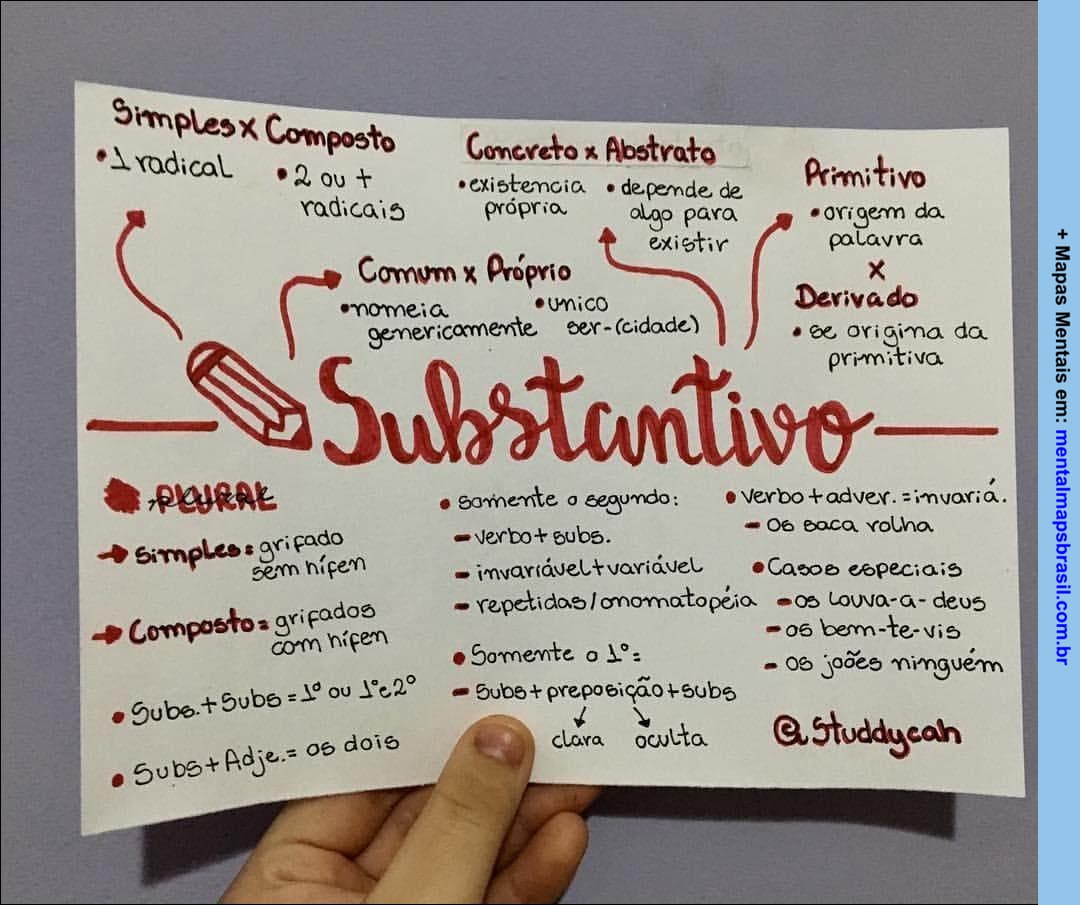 Simples x Composto
• 1 radical
• 2 ou +
radicais
Concreto x Abstrato
• existencia
própria
• depende de
algo para
existir
Primitivo
• origem da
palavra
x
Derivado
• se origina da
primitiva
Comum x Próprio
• nomeia
genericamente
• unico
ser-(cidade)
Substantivo
PLURAL
→ Simples = grifado
sem hífen
→ Composto = grifados
com hífen
• Subs. + Subs = 1º ou 1º e 2º
• Subs + Adje. = os dois
• somente o segundo:
- verbo + subs.
- invariável + variável
- repetidas/onomatopéia
• Somente o 1º:
- Subs + preposição + subs
clara oculta
• verbo + adver. = invariá.
- os saca rolha
• Casos especiais
- os louva-a-deus
- os bem-te-vis
- os joões ninguém
@studdycah
+ Mapas Mentais em: mentalmapsbrasil.com.br